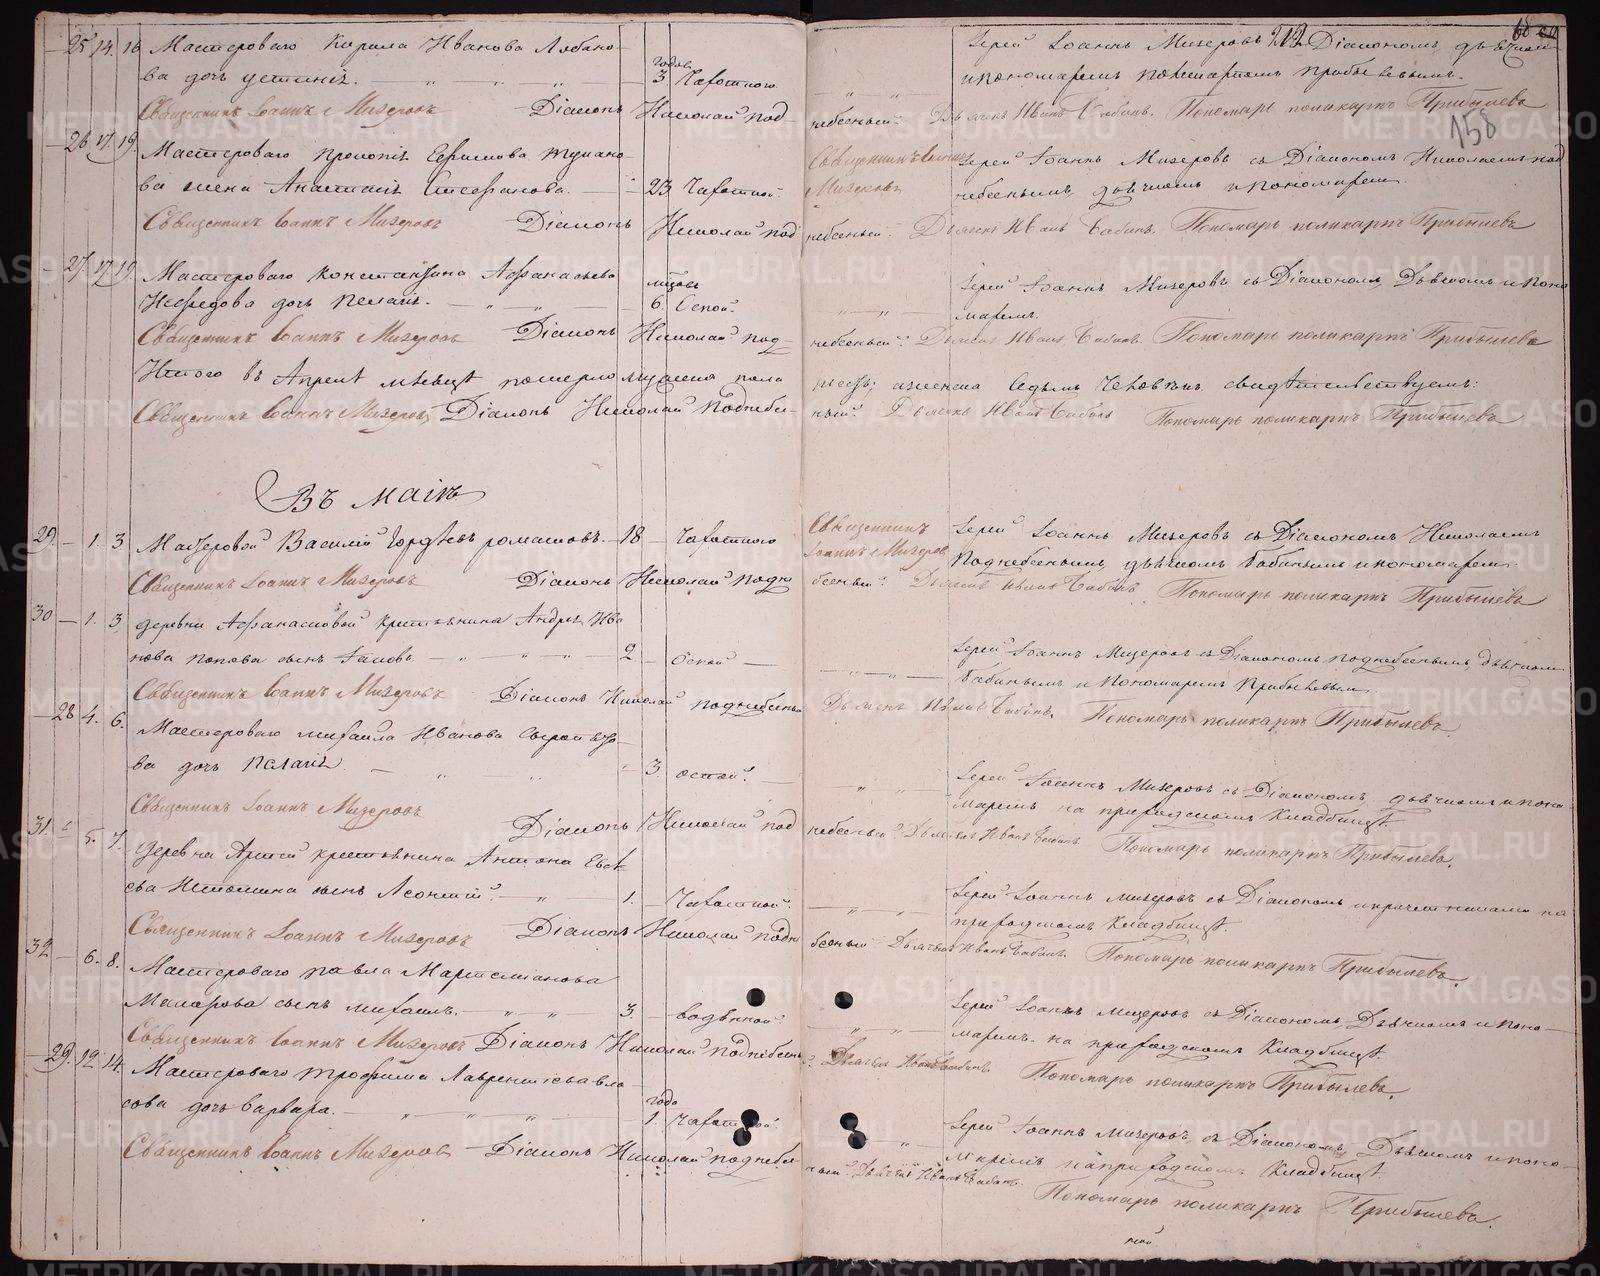 25 14. 16 Мастероваго Карила Иванова Лобано-
ва дочь Устинія. годов 3 Чахоткою.
Священникъ Іоаннъ Мизеровъ Діаконъ Николай Под-
26 17. 19. Мастероваго Прокопія Ефимова
ва жена Анастасія Стефанова. 23 Чахоткой.
Священникъ Іоаннъ Мизеровъ Діаконъ Николай Под
27. 17. 19. Мастероваго Константина Афанасьева
Нефедова дочь Пелагія. 6. Оспой.
Священникъ Іоаннъ Мизеровъ Діаконъ Николай Под-
Итого въ Апрелѣ мѣсяцѣ померло мужеска пола
Священникъ Іоаннъ Мизеровъ Діаконъ Николай Поднебес-
Въ маіѣ
29. 1. 3 Мастеровой Василій Гордѣевъ Ромашовъ. 18 Чахоткою
Священникъ Іоаннъ Мизеровъ Діаконъ Николай Подне
30 1. 3. деревни Афанасковой крестьянина Андрея Ива
нова Попова сынъ Іаковъ 2 Оспой
Священникъ Іоаннъ Мизеровъ Діаконъ Николай Поднебесный
28 4. 6. Мастероваго Михаила Иванова
ва дочь Пелагія. 3. оспой.
Священникъ Іоаннъ Мизеровъ Діаконъ Николай Под
31. 5. 7. деревни Артей крестьянина Антона Евсѣ
ева Истомина сынъ Леонтій. 1. Чахоткой.
Священникъ Іоаннъ Мизеровъ Діаконъ Николай Подне
32 6. 8. Мастероваго Павла
сынъ Михаилъ. 3. водянкой.
Священникъ Іоаннъ Мизеровъ Діаконъ Николай Поднебесный
29. 12. 14. Мастероваго Трофима Лаврентьева Вла-
сова дочь Варвара. года 1. Чахоткой
Священникъ Іоаннъ Мизеровъ Діаконъ Николай Поднебес
158
Іерей Іоаннъ Мизеровъ Діакономъ, дьячкомъ
и пономаремъ Поликарпомъ Прибылевымъ.
небесный. Дьячекъ Иванъ Бабинъ. Пономарь Поликарпъ Прибылевъ
Священникъ Іоаннъ Мизеровъ Іерей Іоаннъ Мизеровъ съ Діакономъ Николаемъ Под
небеснымъ, дьячкомъ и пономаремъ.
небесный. Дьячекъ Иванъ Бабинъ. Пономарь Поликарпъ Прибылевъ
Іерей Іоаннъ Мизеровъ съ Діакономъ, Дьячкомъ и поно
маремъ.
небесный. Дьячекъ Иванъ Бабинъ. Пономарь Поликарпъ Прибылевъ
а женска седьмь человѣкъ, свидѣтельствуемъ:
ный. Дьячекъ Иванъ Бабинъ Пономарь Поликарпъ Прибылевъ
Священникъ Іоаннъ Мизеровъ Іерей Іоаннъ Мизеровъ съ Діакономъ Николаемъ
Поднебеснымъ, дьячкомъ Бабинымъ и пономаремъ.
бесный. Дьячекъ Иванъ Бабинъ Пономарь Поликарпъ Прибылевъ
Іерей Іоаннъ Мизеровъ съ Діакономъ Поднебеснымъ, дьячкомъ
Бабинымъ и Пономаремъ Прибылевымъ
Дьячекъ Иванъ Бабинъ. Пономарь Поликарпъ Прибылевъ.
Іерей Іоаннъ Мизеровъ съ Діакономъ, дьячкомъ и поно-
маремъ на приходскомъ Кладбищѣ.
небесный Дьячекъ Иванъ Бабинъ Пономарь Поликарпъ Прибылевъ.
Іерей Іоаннъ Мизеровъ съ Діакономъ и причетниками на
приходскомъ Кладбищѣ.
бесный Дьячекъ Иванъ Бабинъ. Пономарь Поликарпъ Прибылевъ.
Іерей Іоаннъ Мизеровъ съ Діакономъ, Дьячкомъ и поно-
маремъ на приходскомъ Кладбищѣ.
Дьячекъ Иванъ Бабинъ. Пономарь Поликарпъ Прибылевъ.
Іерей Іоаннъ Мизеровъ, съ Діакономъ, Дьячкомъ и поно-
на приходскомъ Кладбищѣ.
ный Дьячекъ Иванъ Бабинъ.
Пономарь Поликарпъ Прибылевъ.
METRIKI.GASO-URAL.RU